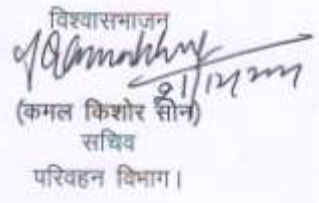 विश्वासभाजन
(कमल किशोर सोन)
सचिव
परिवहन विभाग।